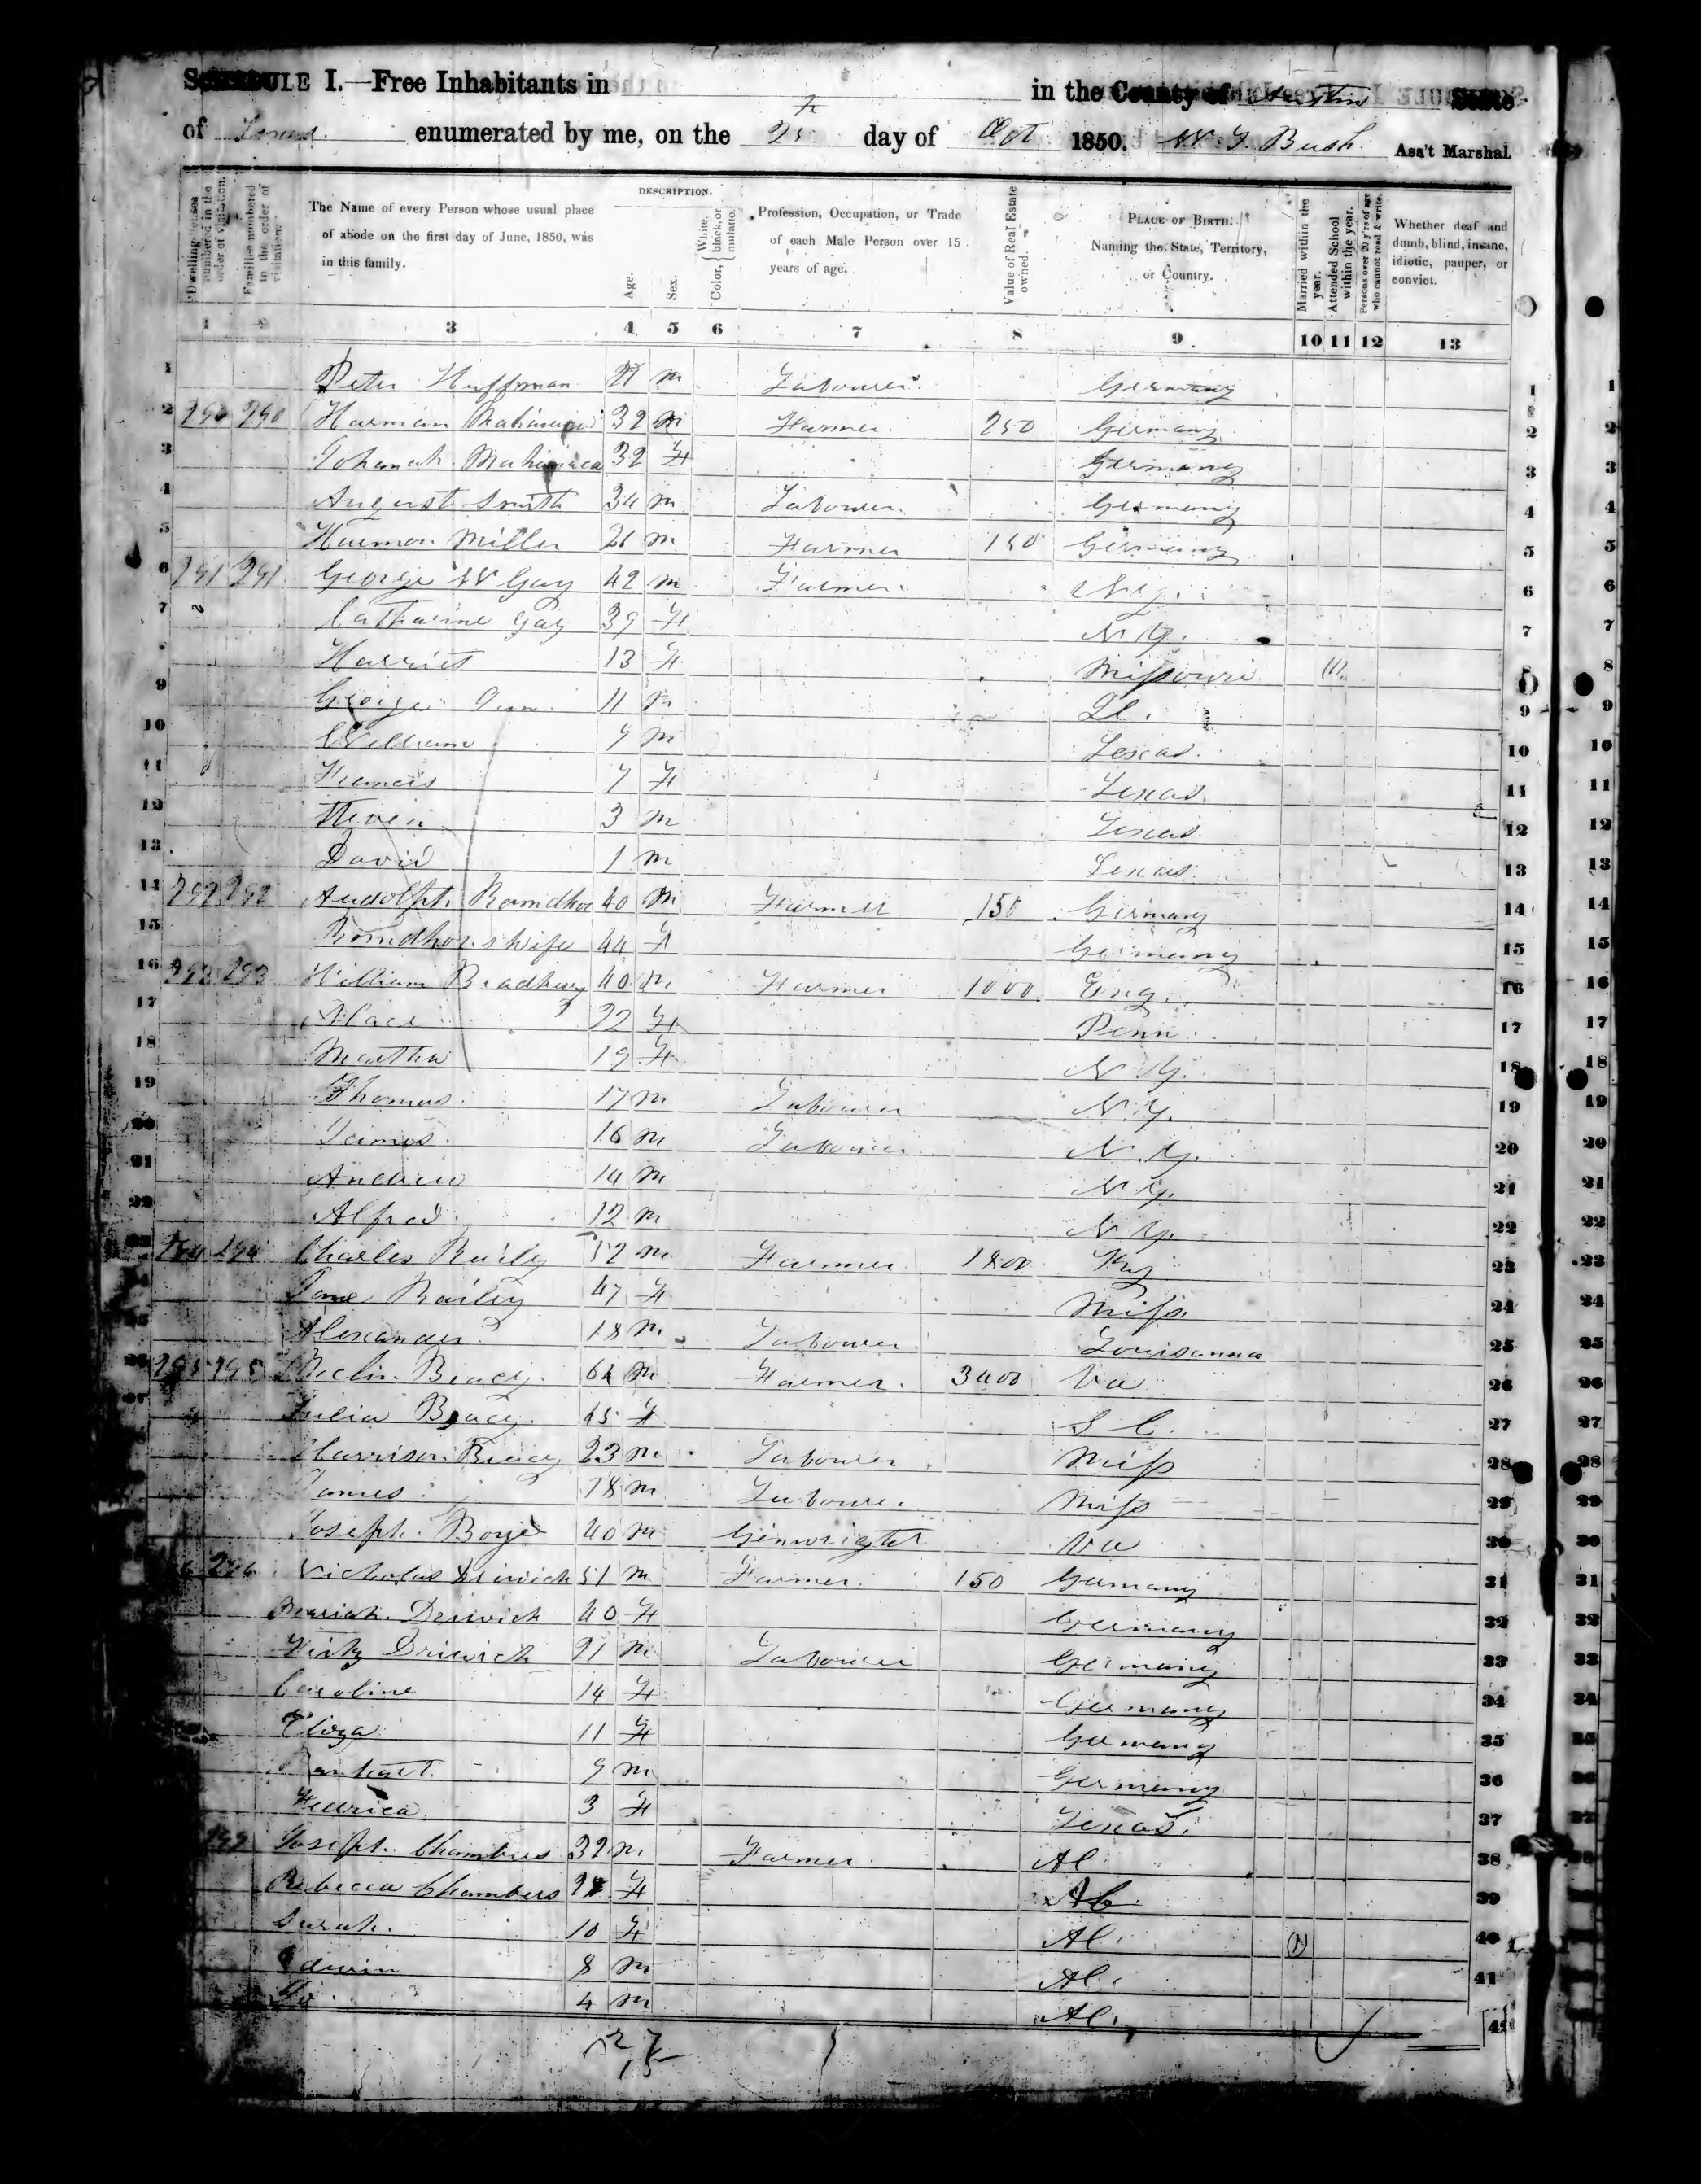 SCHEDULE I.—Free Inhabitants in in the County of Austin State
of Texas enumerated by me, on the 25 day of Oct 1850. W. Y. Bush. Ass't Marshal.
Dwelling-houses numbered in the order of visitation.
Families numbered in the order of visitation.
The Name of every Person whose usual place of abode on the first day of June, 1850, was in this family.
DESCRIPTION.
Age.
Sex.
Color, White, black, or mulatto.
Profession, Occupation, or Trade of each Male Person over 15 years of age.
Value of Real Estate owned.
PLACE OF BIRTH. Naming the State, Territory, or Country.
Married within the year.
Attended School within the year.
Persons over 20 y'rs of age who cannot read & write.
Whether deaf and dumb, blind, insane, idiotic, pauper, or convict.
1 2 3 4 5 6 7 8 9 10 11 12 13
1 Peter Huffman m Labourer Germany 1
2 290 290 Harman 32 m Farmer 250 Germany 2
3 Johanah 32 F Germany 3
4 August Smith 34 m Labourer Germany 4
5 Harmon Miller 26 m Farmer 150 Germany 5
6 291 291 George W Gay 42 m Farmer N Y. 6
7 Catharine Gay 39 F N Y. 7
Harriet 13 F Missouri 8
9 George 11 m Il. 9
10 William 9 m Texas 10
11 Francis 7 F Texas 11
12 Steven 3 m Texas 12
13 David 1 m Texas 13
14 292 292 Rudolph 40 m Farmer 150 Germany 14
15 wife 44 F Germany 15
16 293 293 William Bradbury 40 m Farmer 1000 Eng. 16
17 22 F Penn 17
18 Martha 19 F N Y. 18
19 Thomas 17 m Labourer N Y. 19
20 James 16 m Labourer N Y. 20
21 Andrew 14 m N Y. 21
22 Alfred 12 m N Y. 22
23 294 294 Charles Baily 52 m Farmer 1800 Ky 23
24 Jane Bailey 47 F Miss. 24
25 Alexander 18 m Labourer Louisanna 25
26 295 295 Bracy 64 m Farmer 3400 Va 26
27 Julia Bracy 65 F S C. 27
Harrison Bracy 23 m Labourer Miss 28
James 18 m Labourer Miss 29
Joseph 40 m Ginwright Va 30
296 Nicholas Driwich 51 m Farmer 150 Germany 31
Driwich 40 F Germany 32
Driwich 21 m Labourer Germany 33
Caroline 14 F Germany 34
Eliza 11 F Germany 35
9 m Germany 36
Fedrica 3 F Texas. 37
Joseph Chambers 32 m Farmer Al 38
Rebecca Chambers F Al 39
Sarah 10 F Al. 40
Edwin 8 m Al. 41
4 m Al. 42